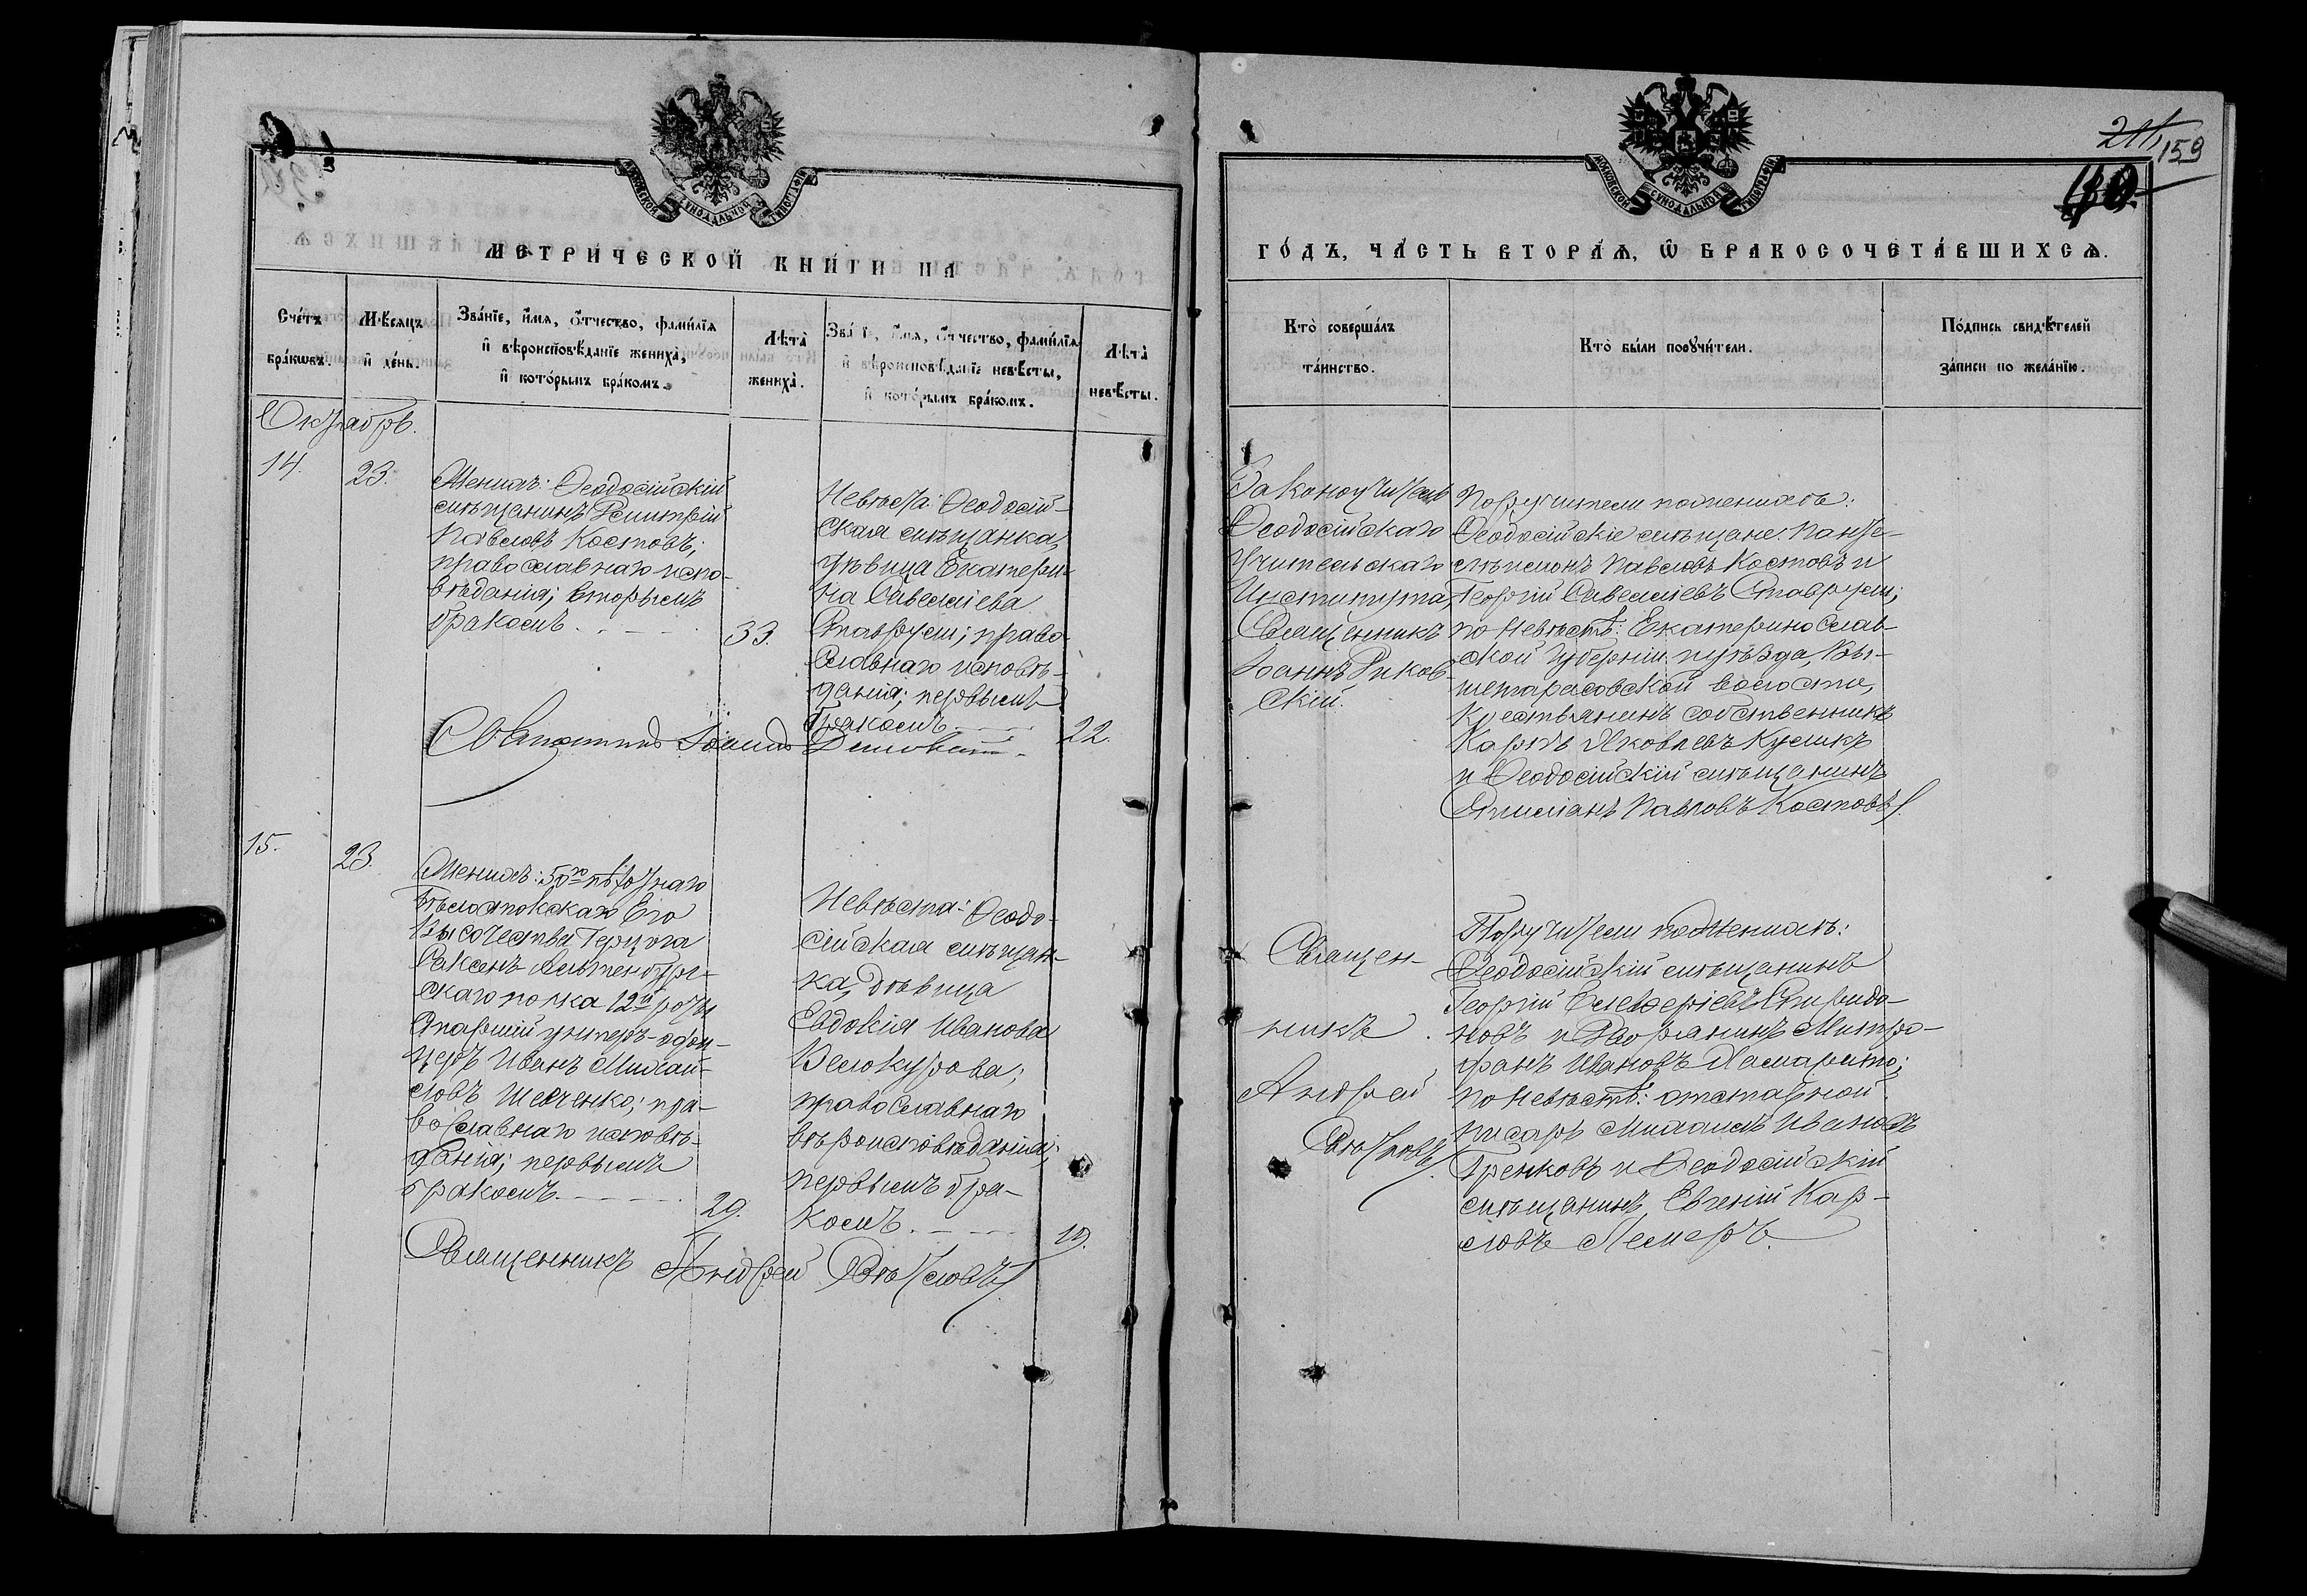 МОСКОВСКОЙ СѴНОДАЛЬНОЙ ТИПОГРАФІИ
МЕТРИ́ЧЕСКОЙ КНИ́ГИ НА
Сче́тъ бра́кωвъ.
Мѣ́сяцъ и҆ де́нь.
Зва́нїе, и҆́мя, ѻ҆́тчество, фами́лїя
и҆ вѣроисповѣ́данїе жениха̀,
и҆ кото́рымъ бра́комъ.
Лѣта̀
жениха̀.
Зва́нїе, и҆́мя, ѻ҆́тчество, фами́лїя
и҆ вѣроисповѣ́данїе невѣ́сты,
и҆ кото́рымъ бра́комъ.
Лѣта̀
невѣ́сты.
Октябрь.
14.
23.
Женихъ: Ѳеодосійскій
мѣщанинъ Димитрій
Павловъ Костовъ;
православнаго испо-
вѣданія; вторымъ
бракомъ
33.
Невѣста: Ѳеодосій-
ская мѣщанка,
дѣвица Екатери-
на Савелліева
Ставрули; право-
славнаго исповѣ-
данія; первымъ
бракомъ
22.
Священникъ Іоаннъ
15.
23.
Женихъ: 50го пѣхотнаго
Бѣлостокскаго Его
Высочества Герцога
Саксенъ Альтенбург-
скаго полка 12й роты
Старшій унтеръ-офи-
церъ Иванъ Михай-
ловъ Шевченко; пра-
вославнаго исповѣ-
данія; первымъ
бракомъ.
29.
Невѣста: Ѳеодо-
сійская мѣщан-
ка, дѣвица
Евдокія Иванова
Белокурова;
православнаго
вѣроисповѣданія;
первымъ бра-
комъ.
19.
Священникъ Андрей
МОСКОВСКОЙ СѴНОДАЛЬНОЙ ТИПОГРАФІИ
159
40.
ГО́ДЪ, ЧА́СТЬ ВТОРА́Ѧ, Ѽ БРАКОСОЧЕТА́ВШИХСѦ.
Кто̀ соверша́лъ
та́инство.
Кто̀ бы́ли порꙋчи́тели.
По́дпись свидѣ́телей
за́писи по жела́нїю.
Законоучитель
Ѳеодосійскаго
Учительскаго
Института,
Священникъ
Іоаннъ
скій.
Поручители по женихѣ:
Ѳеодосійскіе мѣщане: Панте-
леимонъ Павловъ Костовъ и
Георгій Савелліевъ Ставрули;
по невѣстѣ: Екатеринослав-
ской губерніи и уѣзда,
волости,
крестьянинъ собственникъ
Карпъ Яковлевъ Куликъ
и Ѳеодосійскій мѣщанинъ
Павловъ Костовъ.
Священ-
никъ
Андрей
Поручители по женихѣ:
Ѳеодосійскій мѣщанинъ
Георгій Елевѳеріевъ Спиридо-
новъ и Дворянинъ Митро-
фанъ Ивановъ
по невѣстѣ: отставной
писарь Михаилъ Ивановъ
Гренковъ и Ѳеодосійскій
мѣщанинъ Евгеній Кар-
ловъ